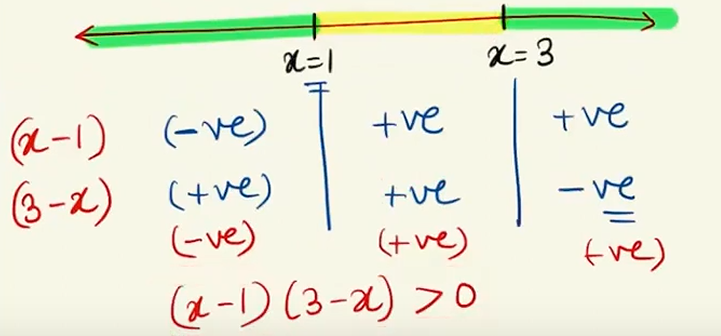 x=1 x=3
(x-1) (-ve) +ve +ve
(3-x) (+ve) +ve -ve
(-ve) (+ve) (-ve)
(x-1) (3-x) > 0